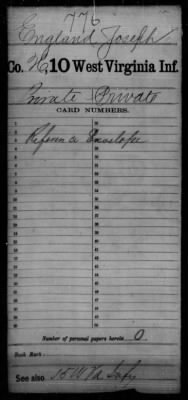 776
England Joseph
Co. H, 10 West Virginia Inf.
Private Private
CARD NUMBERS.
1
2 Reference Envelope
Number of personal papers herein 0
Book Mark:
See also 15 W Va Inf